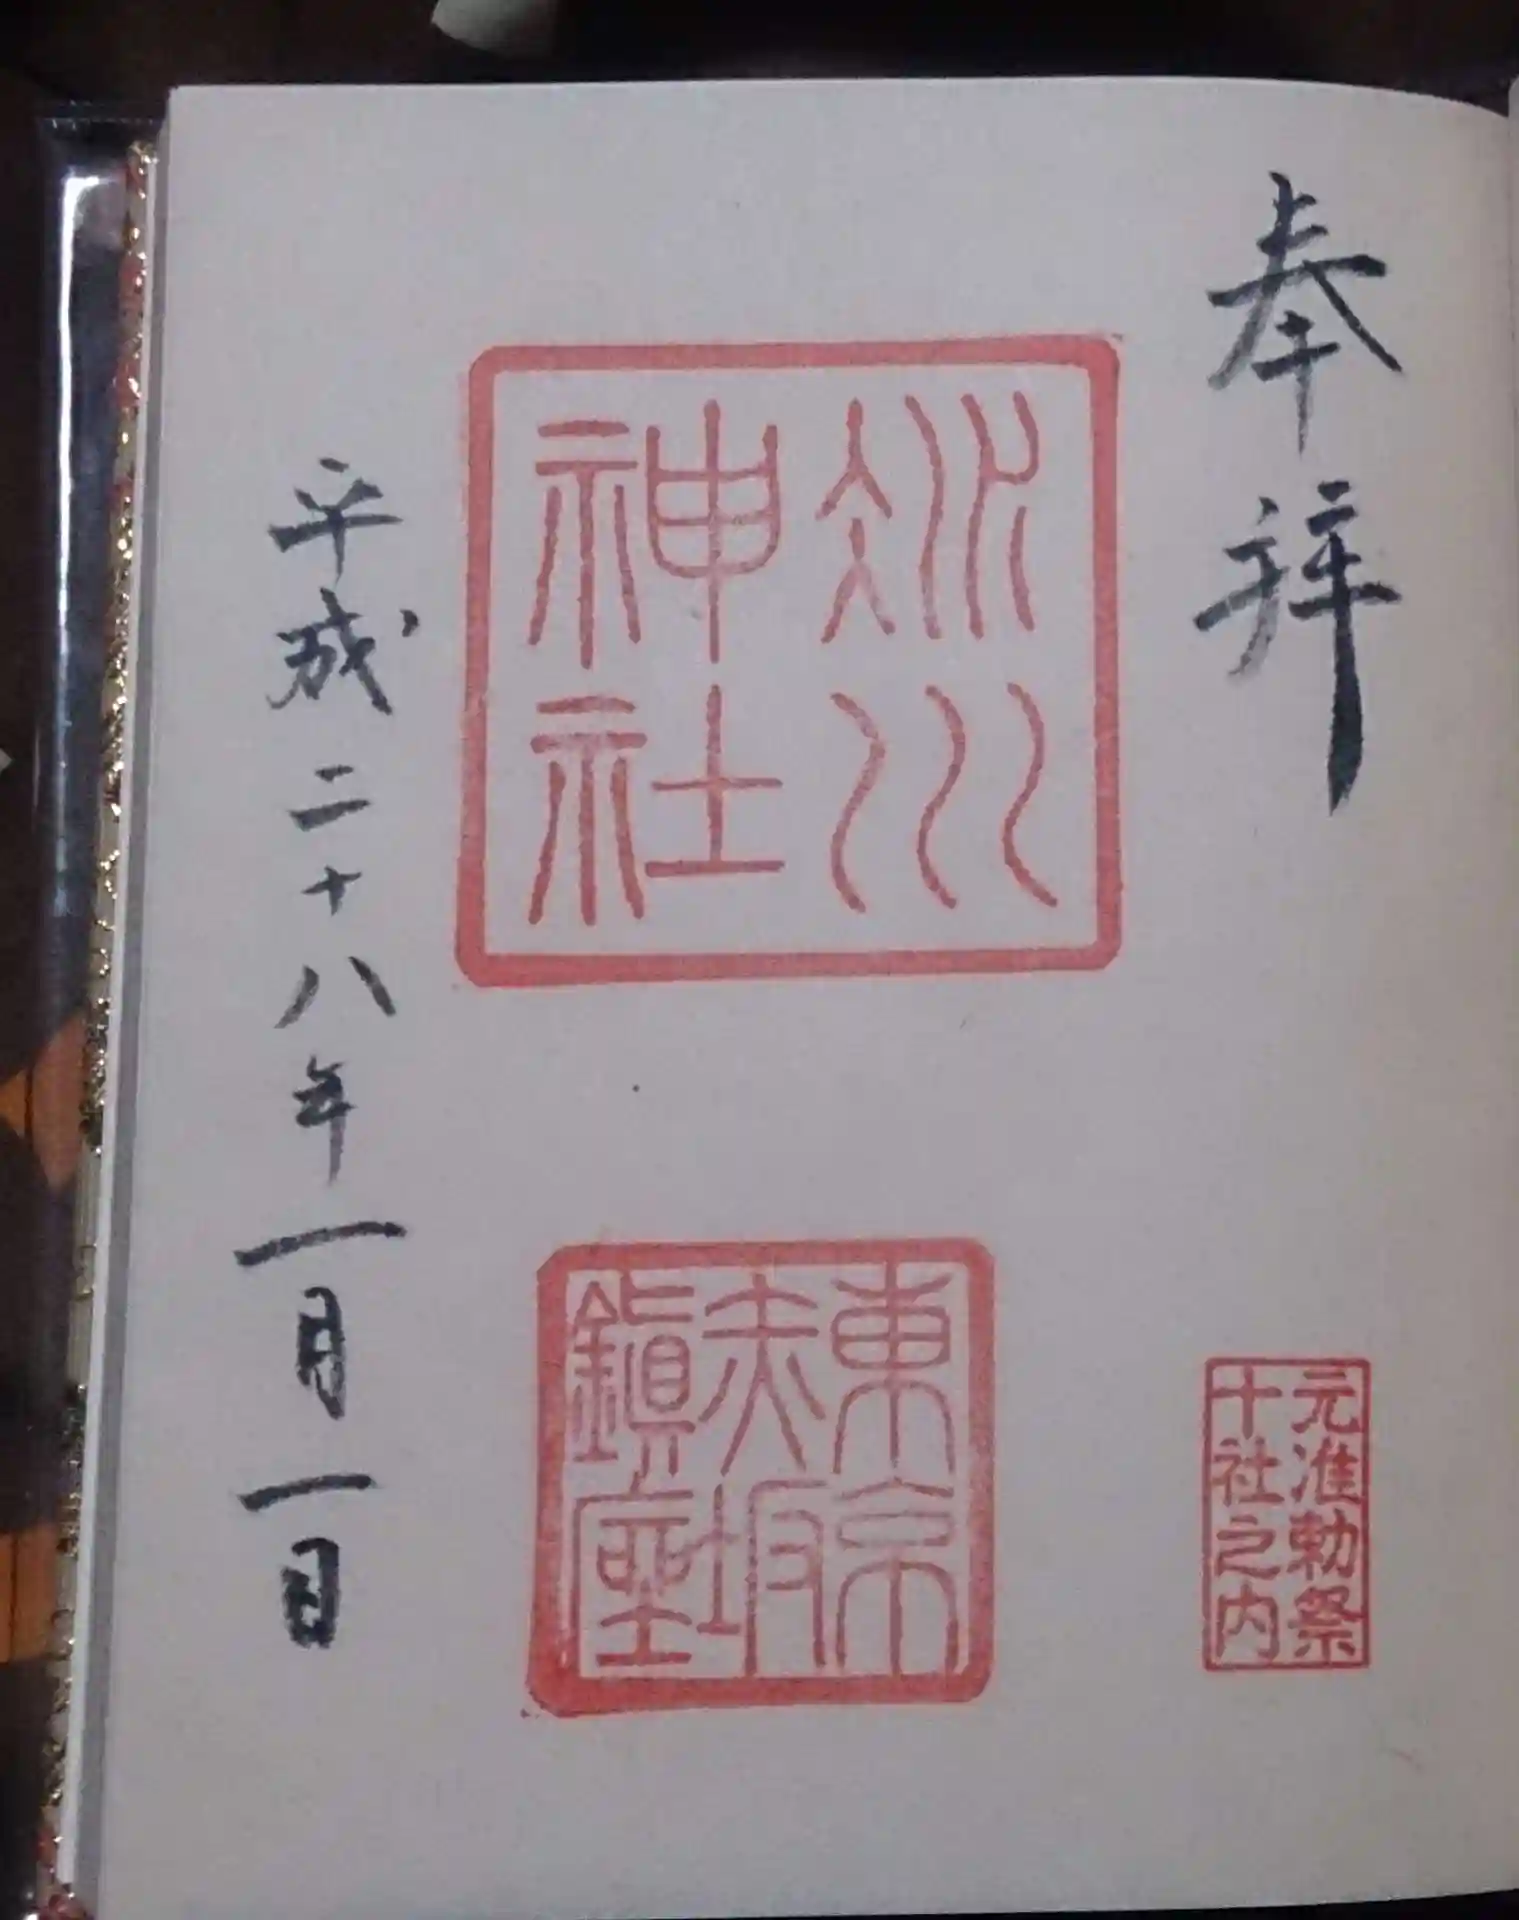 奉拝
元准勅祭
十社之内
氷川
神社
東京
赤坂
鎭座
平成二十八年一月一日